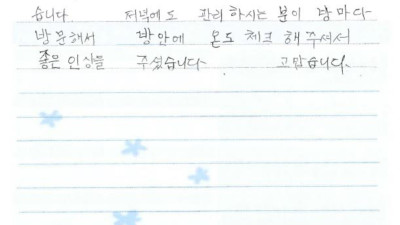 습니다. 저녁에도 관리하시는 분이 방마다
방문해서 방안에 온도 체크 해주셔서
좋은 인상을 주셨습니다 고맙습니다.